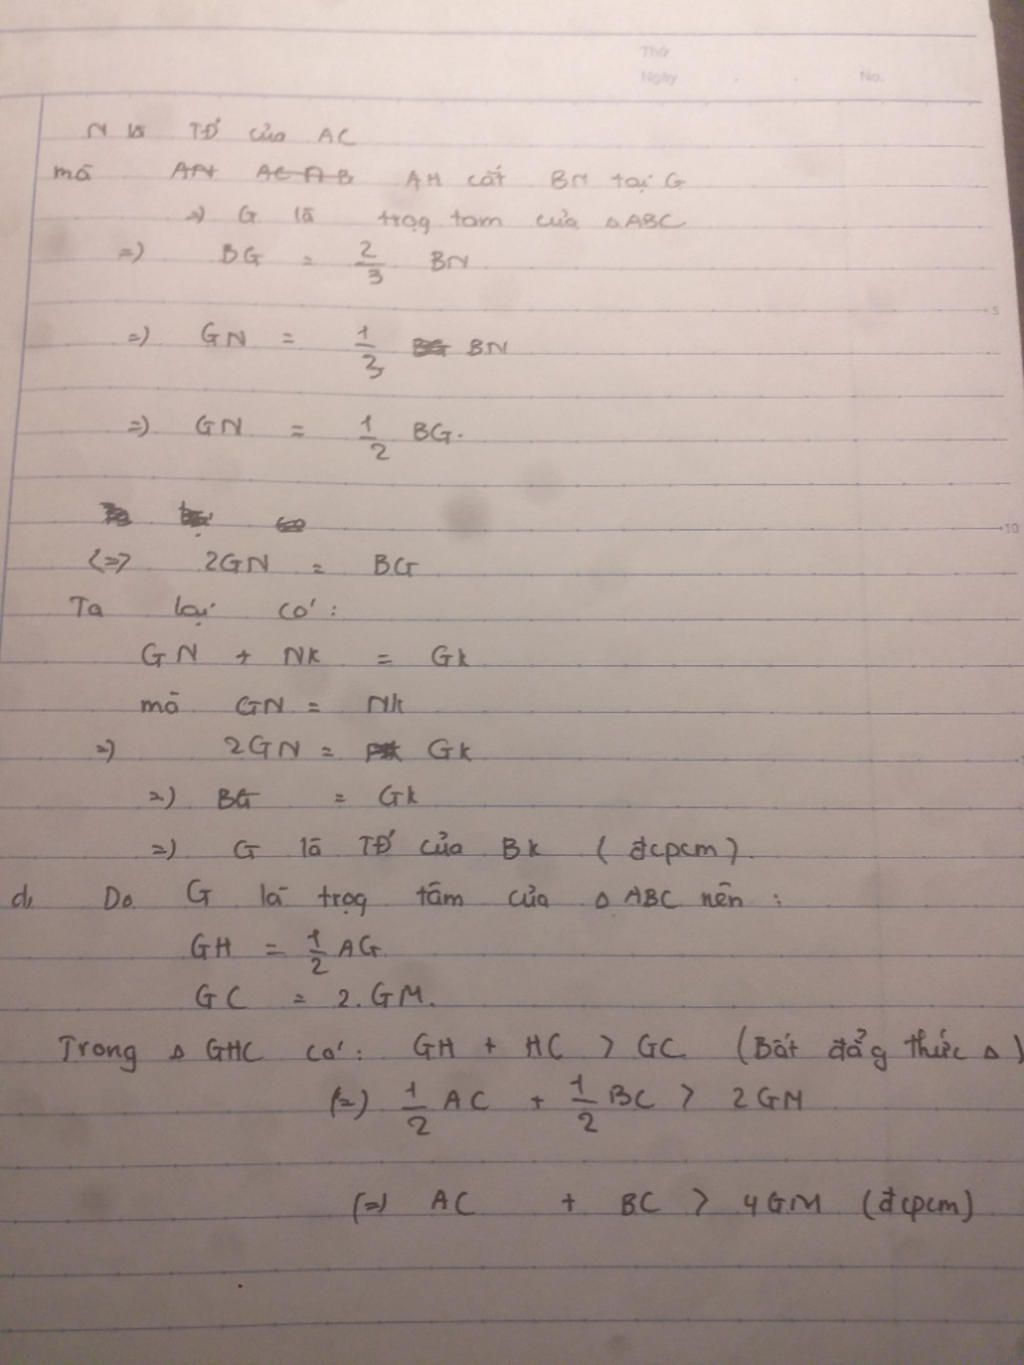 Thứ
Ngày . . No.
N là TĐ của AC
mà AN AC AB AH cắt BN tại G
=) G là trọg tam của ΔABC
=) BG = 2/3 BN
=) GN = 1/3 BG BN
=) GN = 1/2 BG.
(=) 2GN = BG
Ta lại có:
GN + Nk = Gk
mà GN = Nk
=) 2GN = Gk
=) BG = Gk
=) G là TĐ của Bk (đcpcm).
d, Do G là trọg tâm của Δ ABC nên :
GH = 1/2 AG
GC = 2.GM.
Trong Δ GHC có: GH + HC > GC (Bất đẳg thức Δ)
(=) 1/2 AC + 1/2 BC > 2GM
(=) AC + BC > 4GM (đcpcm)
5
10